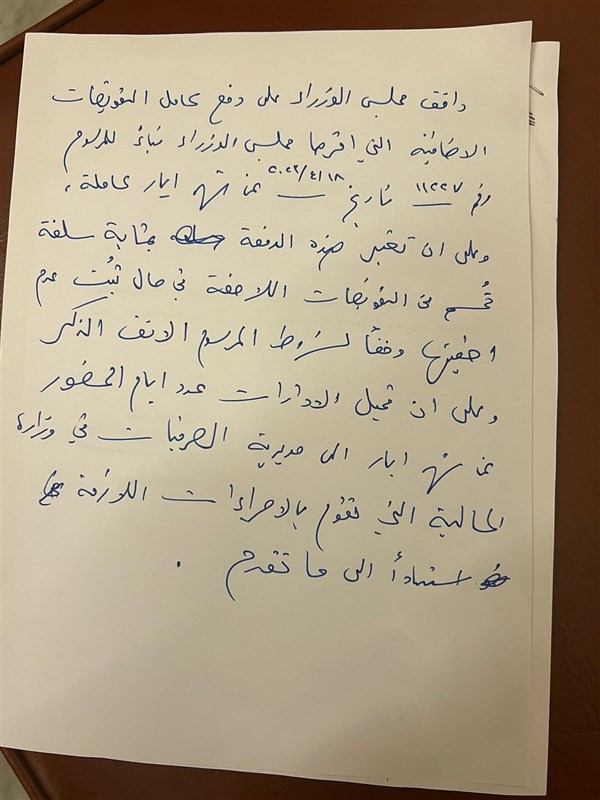 وافق مجلس الوزراء على دفع كامل التعويضات
الاضافية التي اقرها مجلس الوزراء بناءً للمرسوم
رقم ١١٢٢٧ تاريخ ٢٠٢٣/٤/١٨ عن شهر ايار كاملة،
وعلى ان تعتبر هذه الدفعة بمثابة سلفة
تُحسم من التعويضات اللاحقة في حال ثبُت عدم
احقيتها وفقاً لشروط المرسوم الانف الذكر
وعلى ان تحيل الادارات عدد ايام الحضور
عن شهر ايار الى مديرية الصرفيات في وزارة
المالية التي تقوم بالاجراءات اللازمة
استناداً الى ما تقدم .